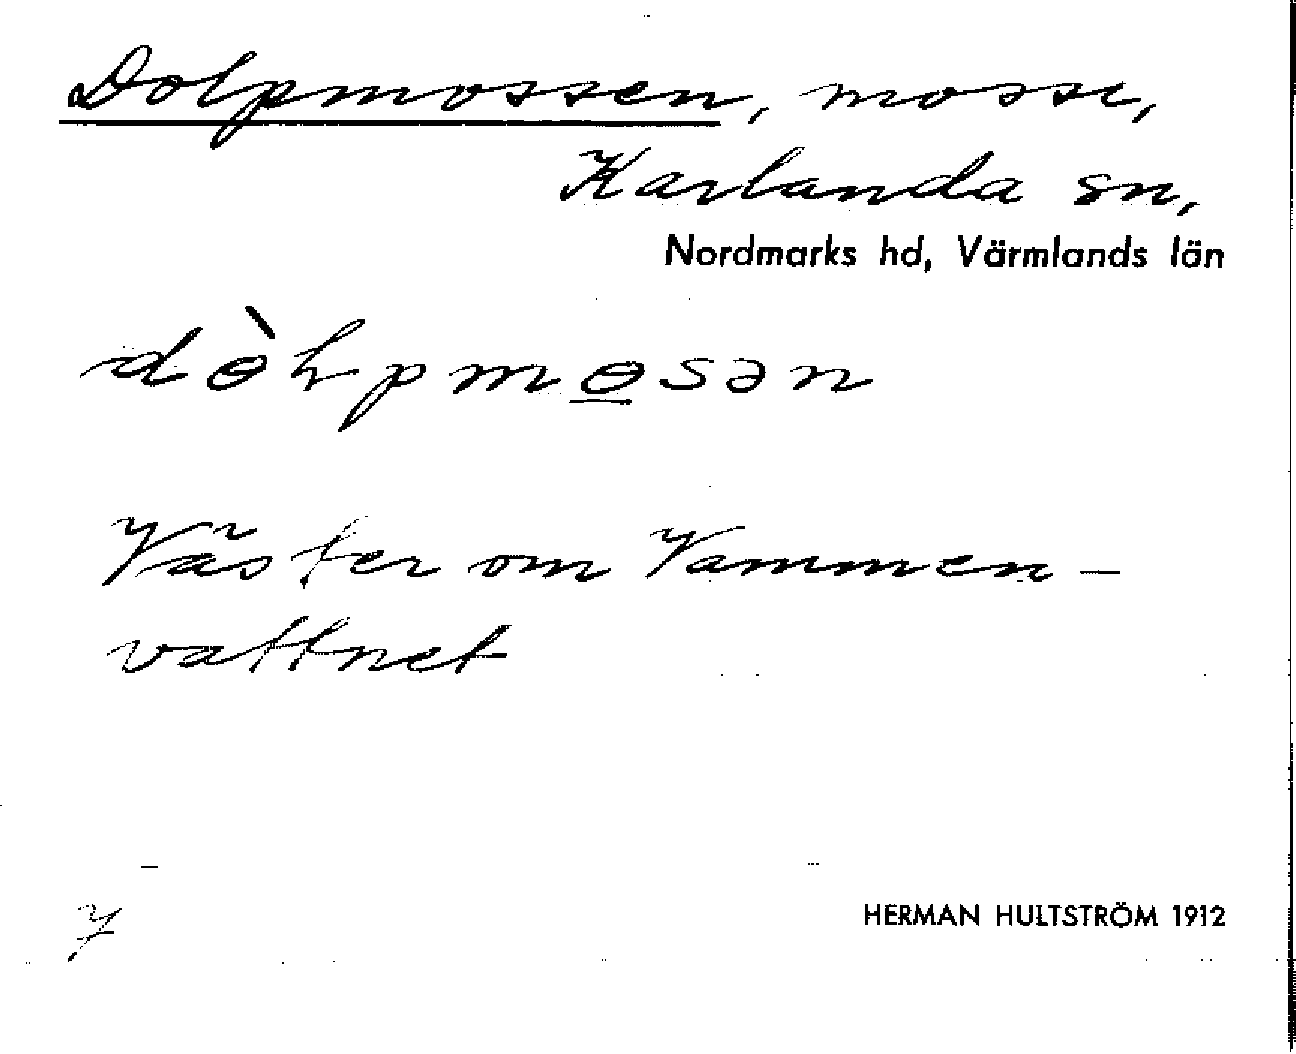 Dolpmossen, mosse,
Karlanda sn,
Nordmarks hd, Värmlands län
Väster om Vammen-
vattnet
7
HERMAN HULTSTRÖM 1912